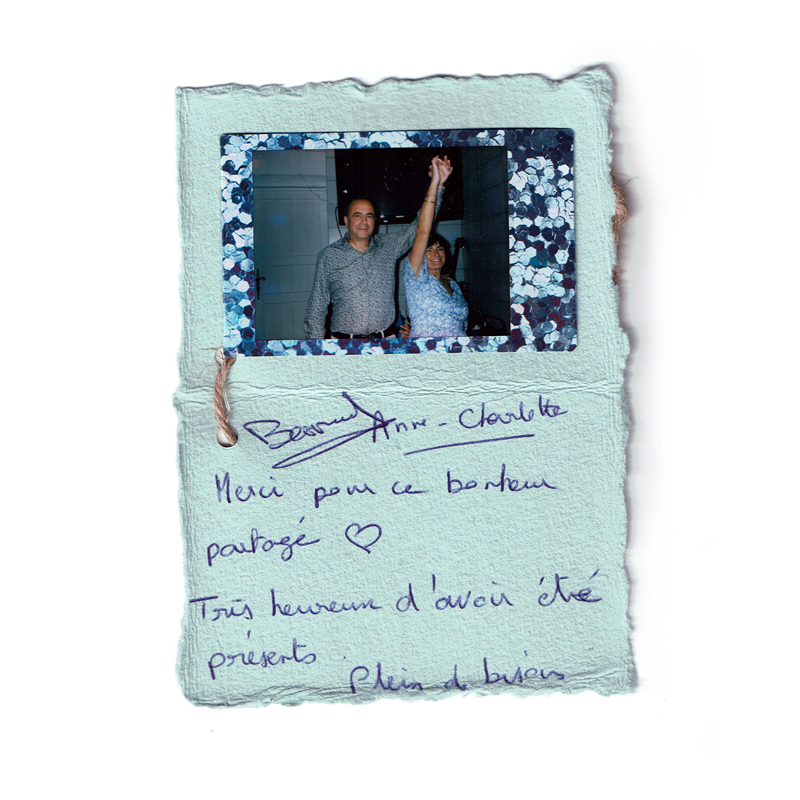 Bernard Anne-Charlotte
Merci pour ce bonheur
partagé ♡
Très heureux d'avoir été
présents.
Plein de bisous